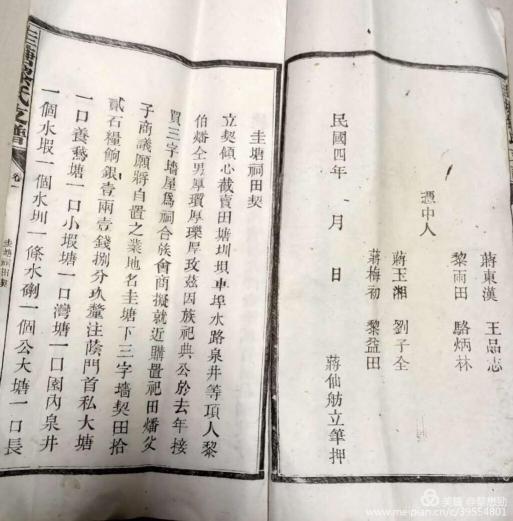 蔣東漢 王品志
黎雨田 駱炳林
憑中人
蔣玉湘 劉子全
蔣梅初 黎益田
民國四年 月 日 蔣仙舫立筆押
圭塘祠田契
立契傾心截賣田塘圳垻車埠水路泉井等項人黎
伯燔仝男厚環厚瓅厚玫茲因族祀典公於去年接
買三字墻屋爲祠合族會商擬就近購置祀田燔父
子商議願將自置之業地名圭塘下三字墻契田拾
貳石糧餉銀壹兩壹錢捌分玖釐注蔭門首私大塘
一口養魚塘一口小塅塘一口灣塘一口園內泉井
一個水塅一個水圳一條水㘭一個公大塘一口長
氏支譜
卷一
圭塘祠田契
美篇 @黎想勁
www.meipian.cn/c/39554801